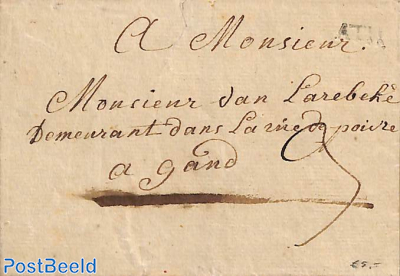 A Monsieur.
ATH
Monsieur van Larebeke
Demeurant dans La rue de poivre
a gand
3
PostBeeld
€5,-